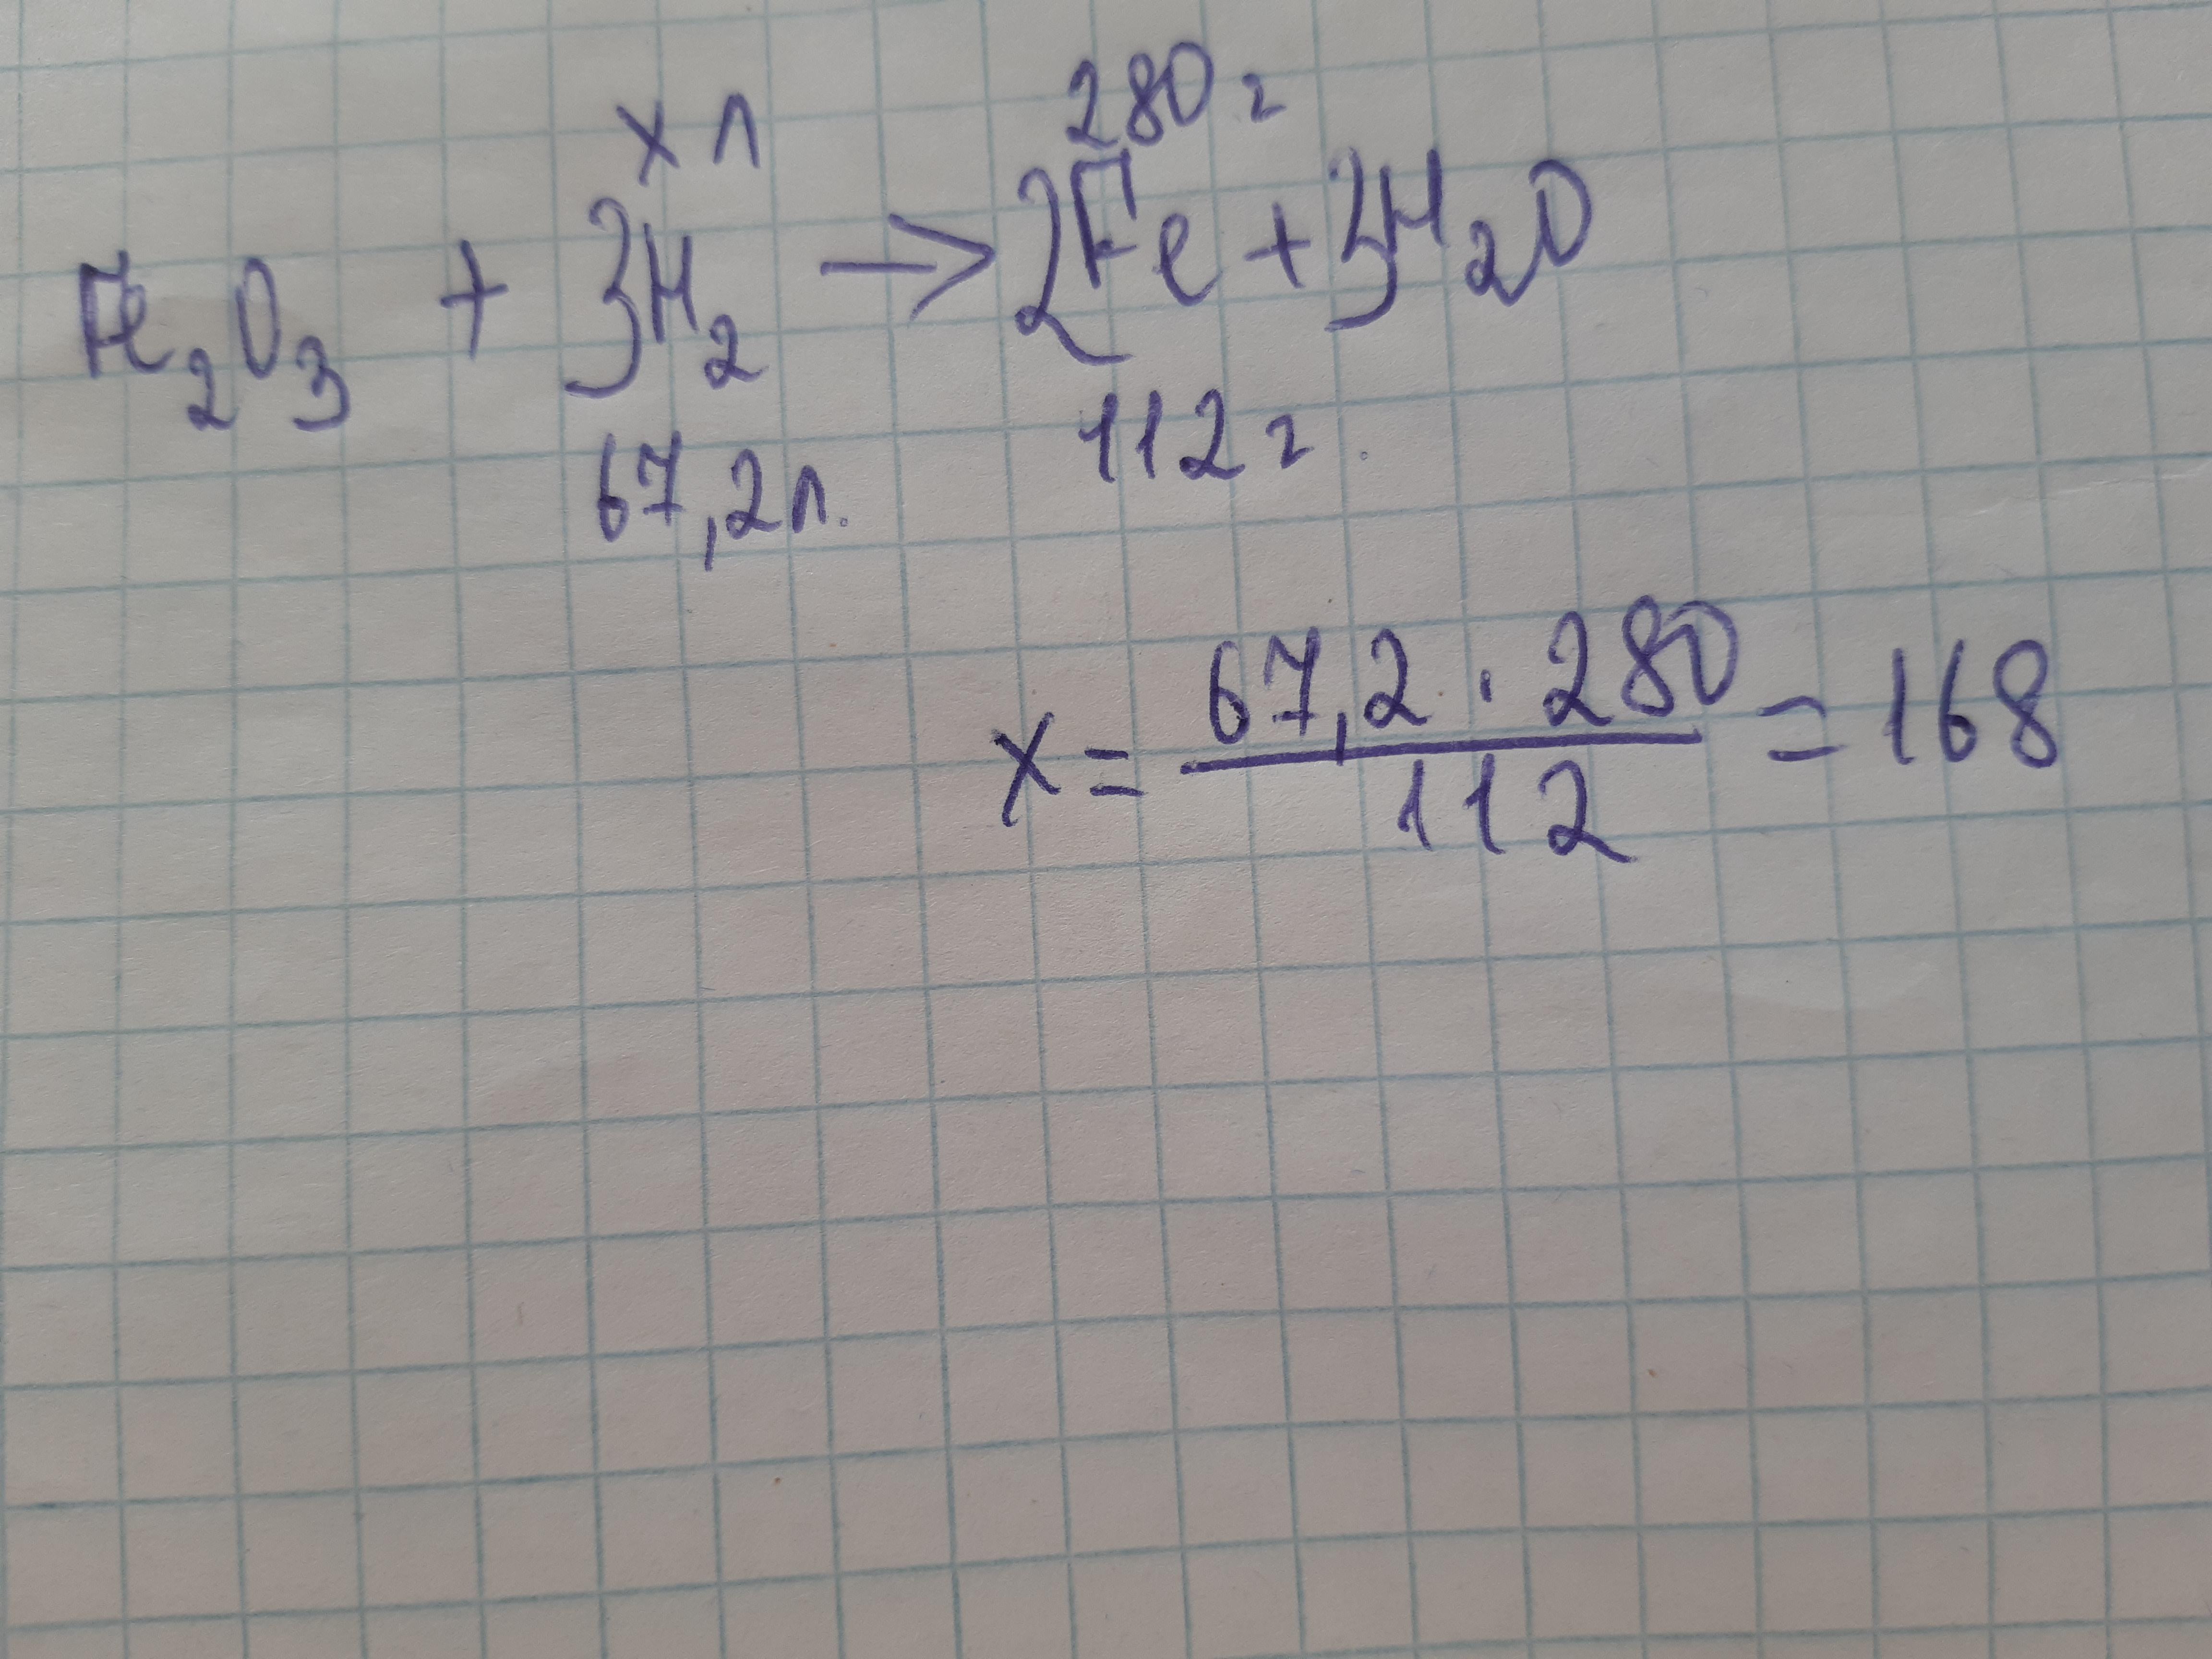 x л 280 г
Fe₂O₃ + 3H₂ → 2Fe + 3H₂O
67,2 л. 112 г.
x = (67,2 · 280) / 112 = 168